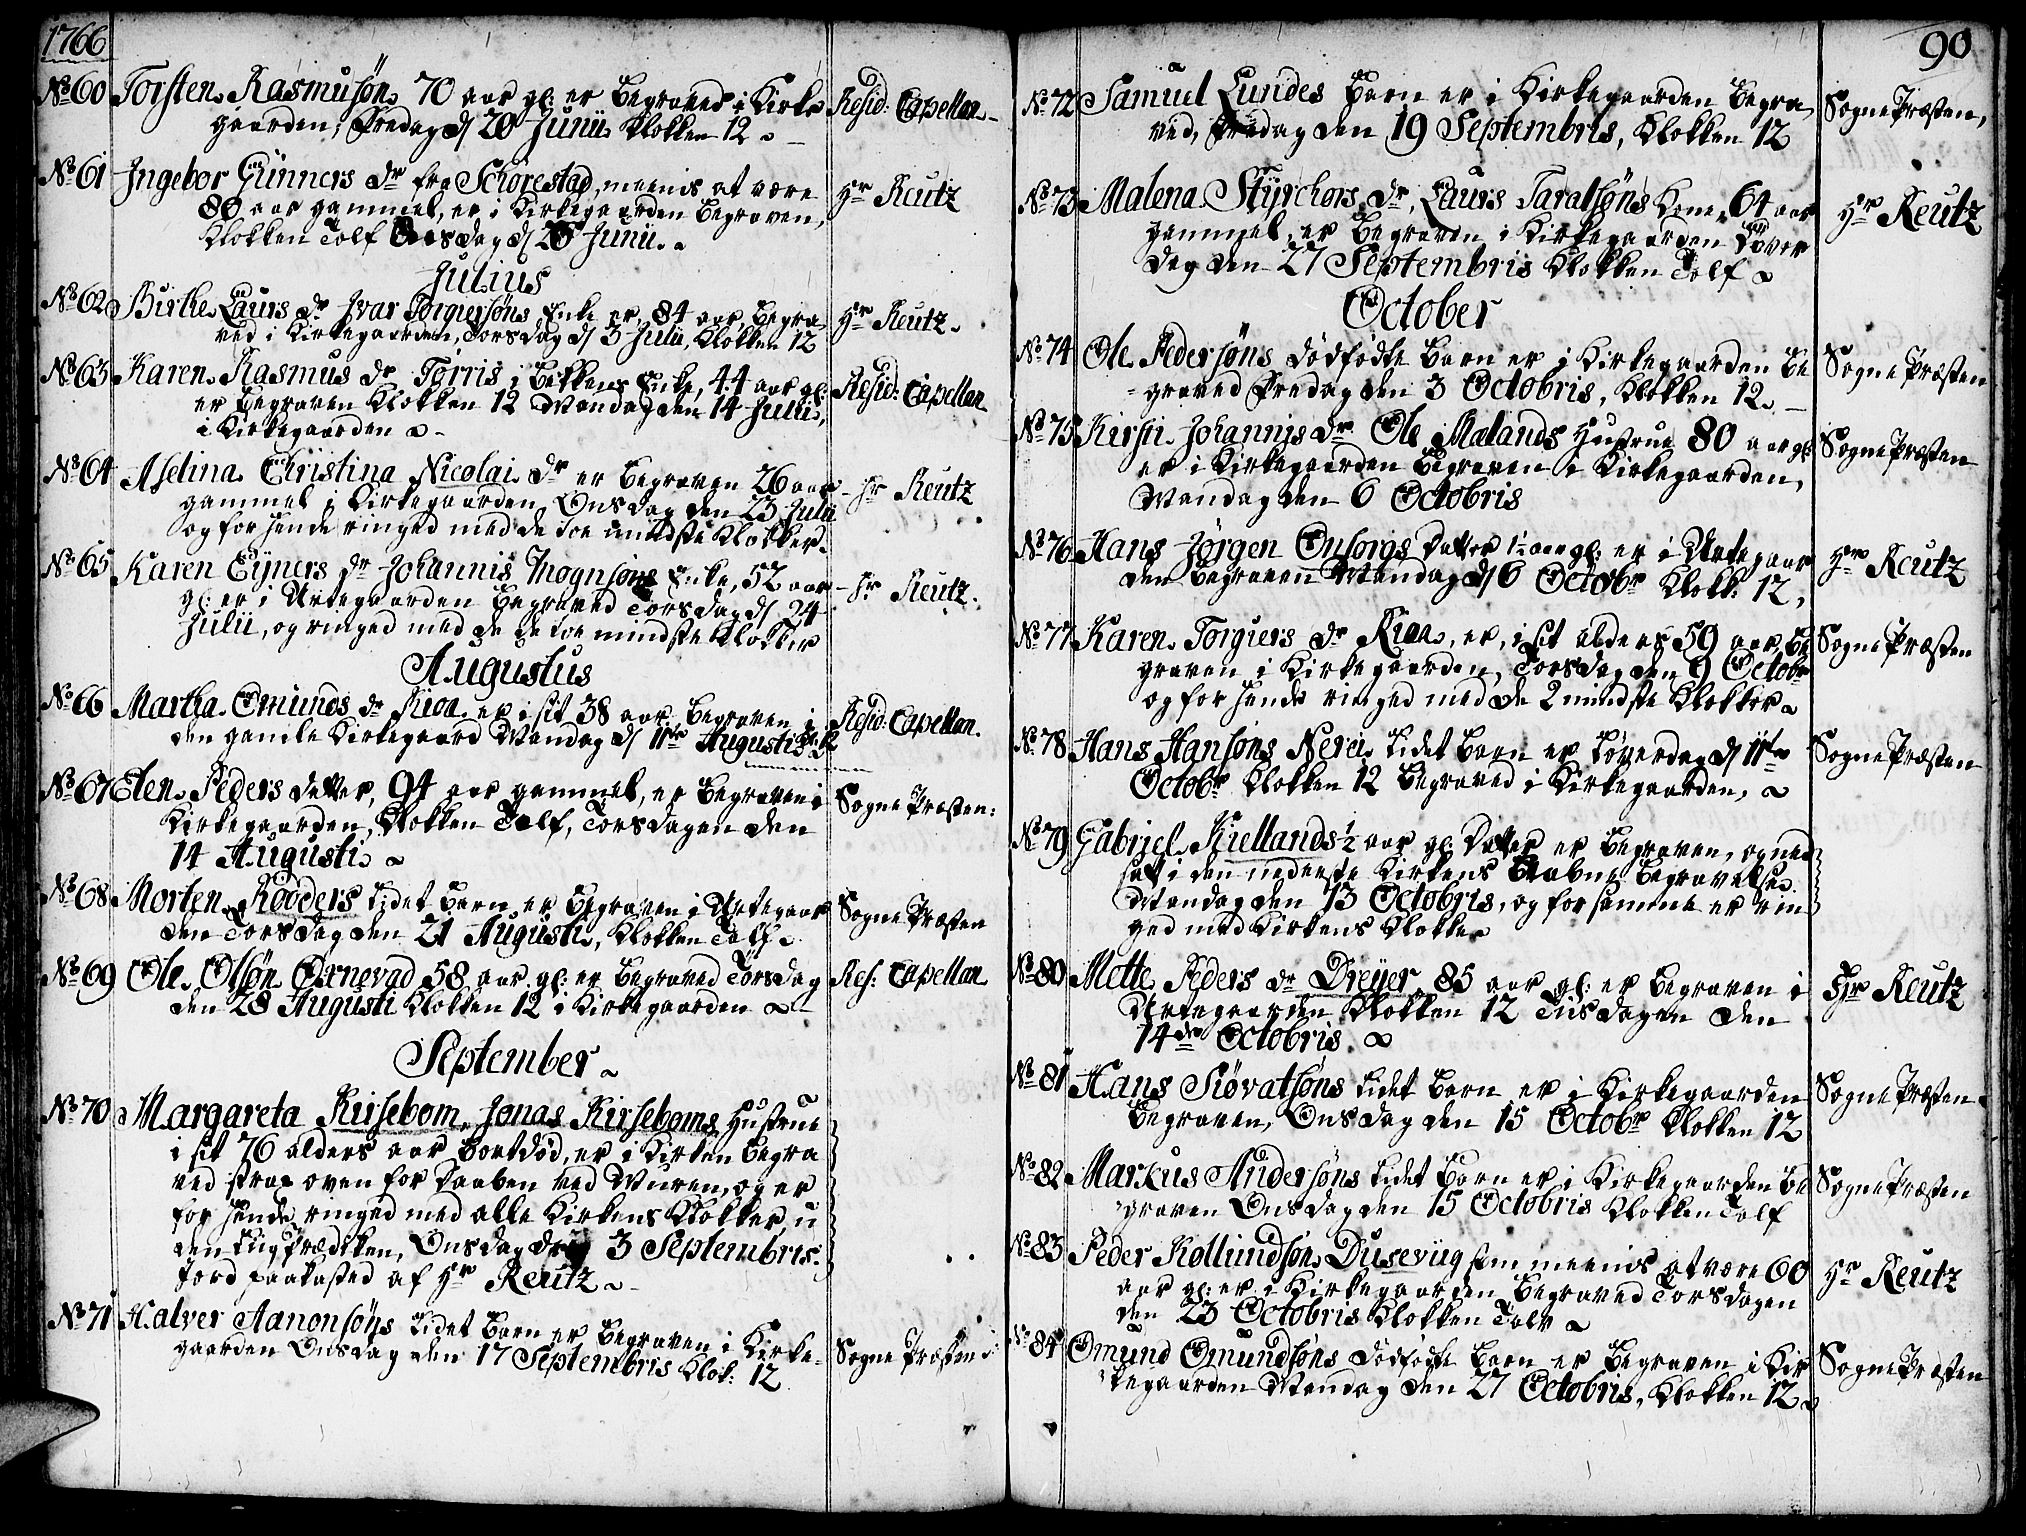 1766
No 60 Torsten Rasmusøn 70 aar gl: er begraved i Kirke
gaarden, Fredag d/ 20 Junii Klokken 12
Resid: Capellan
No 61 Ingebor Günners dr fra Schorestad, meenis at være
80 aar gammel, er i Kirkegaarden begraven,
Klokken Tolf Onsdag d/ 26 Junii.
Hr Reutz
Julius
No 62 Birthe Laurs dr Ivar Torgiersøns Enke er 84 aar, begra
ved i Kirkegaarden, Torsdag d/ 3 Julii, Klokken 12
Hr Reutz
No 63 Karen Rasmus dr Torris i Bekkens Enke, 44 aar gl:
er begraven Klokken 12 Mandag den 14 Julii,
i Kirkegaarden
Resid: Capellan
No 64 Aselina Christina Nicolai dr er begraven 26 aar
gammel i Kirkegaarden Onsdag den 23 Julii
og for hende ringed med de toe mindste Klokker
Hr Reutz
No 65 Karen Eijners dr Johannis Mognsøns Enke, 52 aar
gl: er i Urtegaarden begraved Torsdag d/ 24
Julii, og ringed med de de toe mindste Klokker
Hr Reutz
Augustus
No 66 Martha Omunds dr Riaa er i sit 38 aar begraven i
den gamle Kirkegaard Mandag d/ 11te Augusti Kl: 12
Resid: Capellan
No 67 Elen Peders datter, 94 aar gammel, er begraven i
Kirkegaarden, Klokken Tolf, Torsdagen den
14 Augusti
Sogne Præsten:
No 68 Morten Rødders lidet barn er begraven i Urtegaar
den Torsdag den 21 Augusti, Klokken Tolf
Sogne Præsten
No 69 Ole Olsøn Ørnevad 58 aar gl: er begraved Torsdag
den 28 Augusti Klokken 12 i Kirkegaarden
Res: Capellan
September
No 70 Margareta Kirsebom, Jonas Kirseboms Hustrue
i sit 76 alders aar bortdød, er i Kirken begra
ved strax oven for Daaben ved Muren, og er
for hende ringed med alle Kirkens Klokker u
den Liig Prædiken, Onsdag 3 Septembris.
Jord paakasted af Hr Reutz
No 71 Halver Aanonsøns lidet barn er begraven i Kirke-
gaarden Onsdag den 17 Septembris Klok: 12
Sogne Præsten
90
No 72 Samuel Lundes barn er i Kirkegaarden begra
ved, Fredag den 19 Septembris, Klokken 12
Sogne Præsten,
No 73 Malena Styrchors dr, Laurs Taralsøns Kone, 64 aar
gammel, er begraven i Kirkegaarden Løver
dag den 27 Septembris Klokken Tolf
Hr Reutz
October
No 74 Ole Pedersøns dødfødte barn er i Kirkegaarden be
graved Fredag den 3 Octobris, Klokken 12
Sogne Præsten
No 75 Kirsti Johannis dr Ole Malands Hustrue 80 aar gl:
er i Kirkegaarden begraven i Kirkegaarden,
Mandag den 6 Octobris
Sogne Præsten
No 76 Hans Jørgen Onsorgs Datter 1½ aar gl: er i Urtegaar
den begraven Mandag d/ 6 Octobr Klokk: 12,
Hr Reutz
No 77 Karen Torgiers dr Riaa, er, i sit alders 59 aar, be
graven i Kirkegaarden, Torsdag den 9 Octobr
og for hende ringed med de 2 mindste Klokker
Sogne Præsten
No 78 Hans Hansøns Nerei lidet barn er Løverdag d/ 11te
Octobr Klokken 12 begraved i Kirkegaarden,
Sogne Præsten
No 79 Gabriel Kiellands ½ aar gl: Datter er begraven, og ned
sat i den nederste Kirkens Aabne begravelse
Mandag den 13 Octobris, og for samme er rin
ged med Kirkens Klokke
No 80 Mette Peders dr Dreyer, 85 aar gl: er begraven i
Urtegaarden Klokken 12 Tiisdagen den
14de Octobris
Hr Reutz
No 81 Hans Siøvatsøns lidet barn er i Kirkegaarden
begraven, Onsdag den 15 Octobr Klokken 12
Sogne Præsten
No 82 Markus Andersøns lidet barn er i Kirkegaarden be
graven Onsdag den 15 Octobris Klokken Tolf
Sogne Præsten
No 83 Peder Kollundsøn Dusevüg som meenis at være 60
aar gl: er i Kirkegaarden begraved Torsdagen
den 23 Octobris Klokken Tolv
Hr Reutz
No 84 Omund Omundsøns dødfødte barn er begraven i Kir
kegaarden Mandag den 27 Octobris, Klokken 12
Sogne Præsten